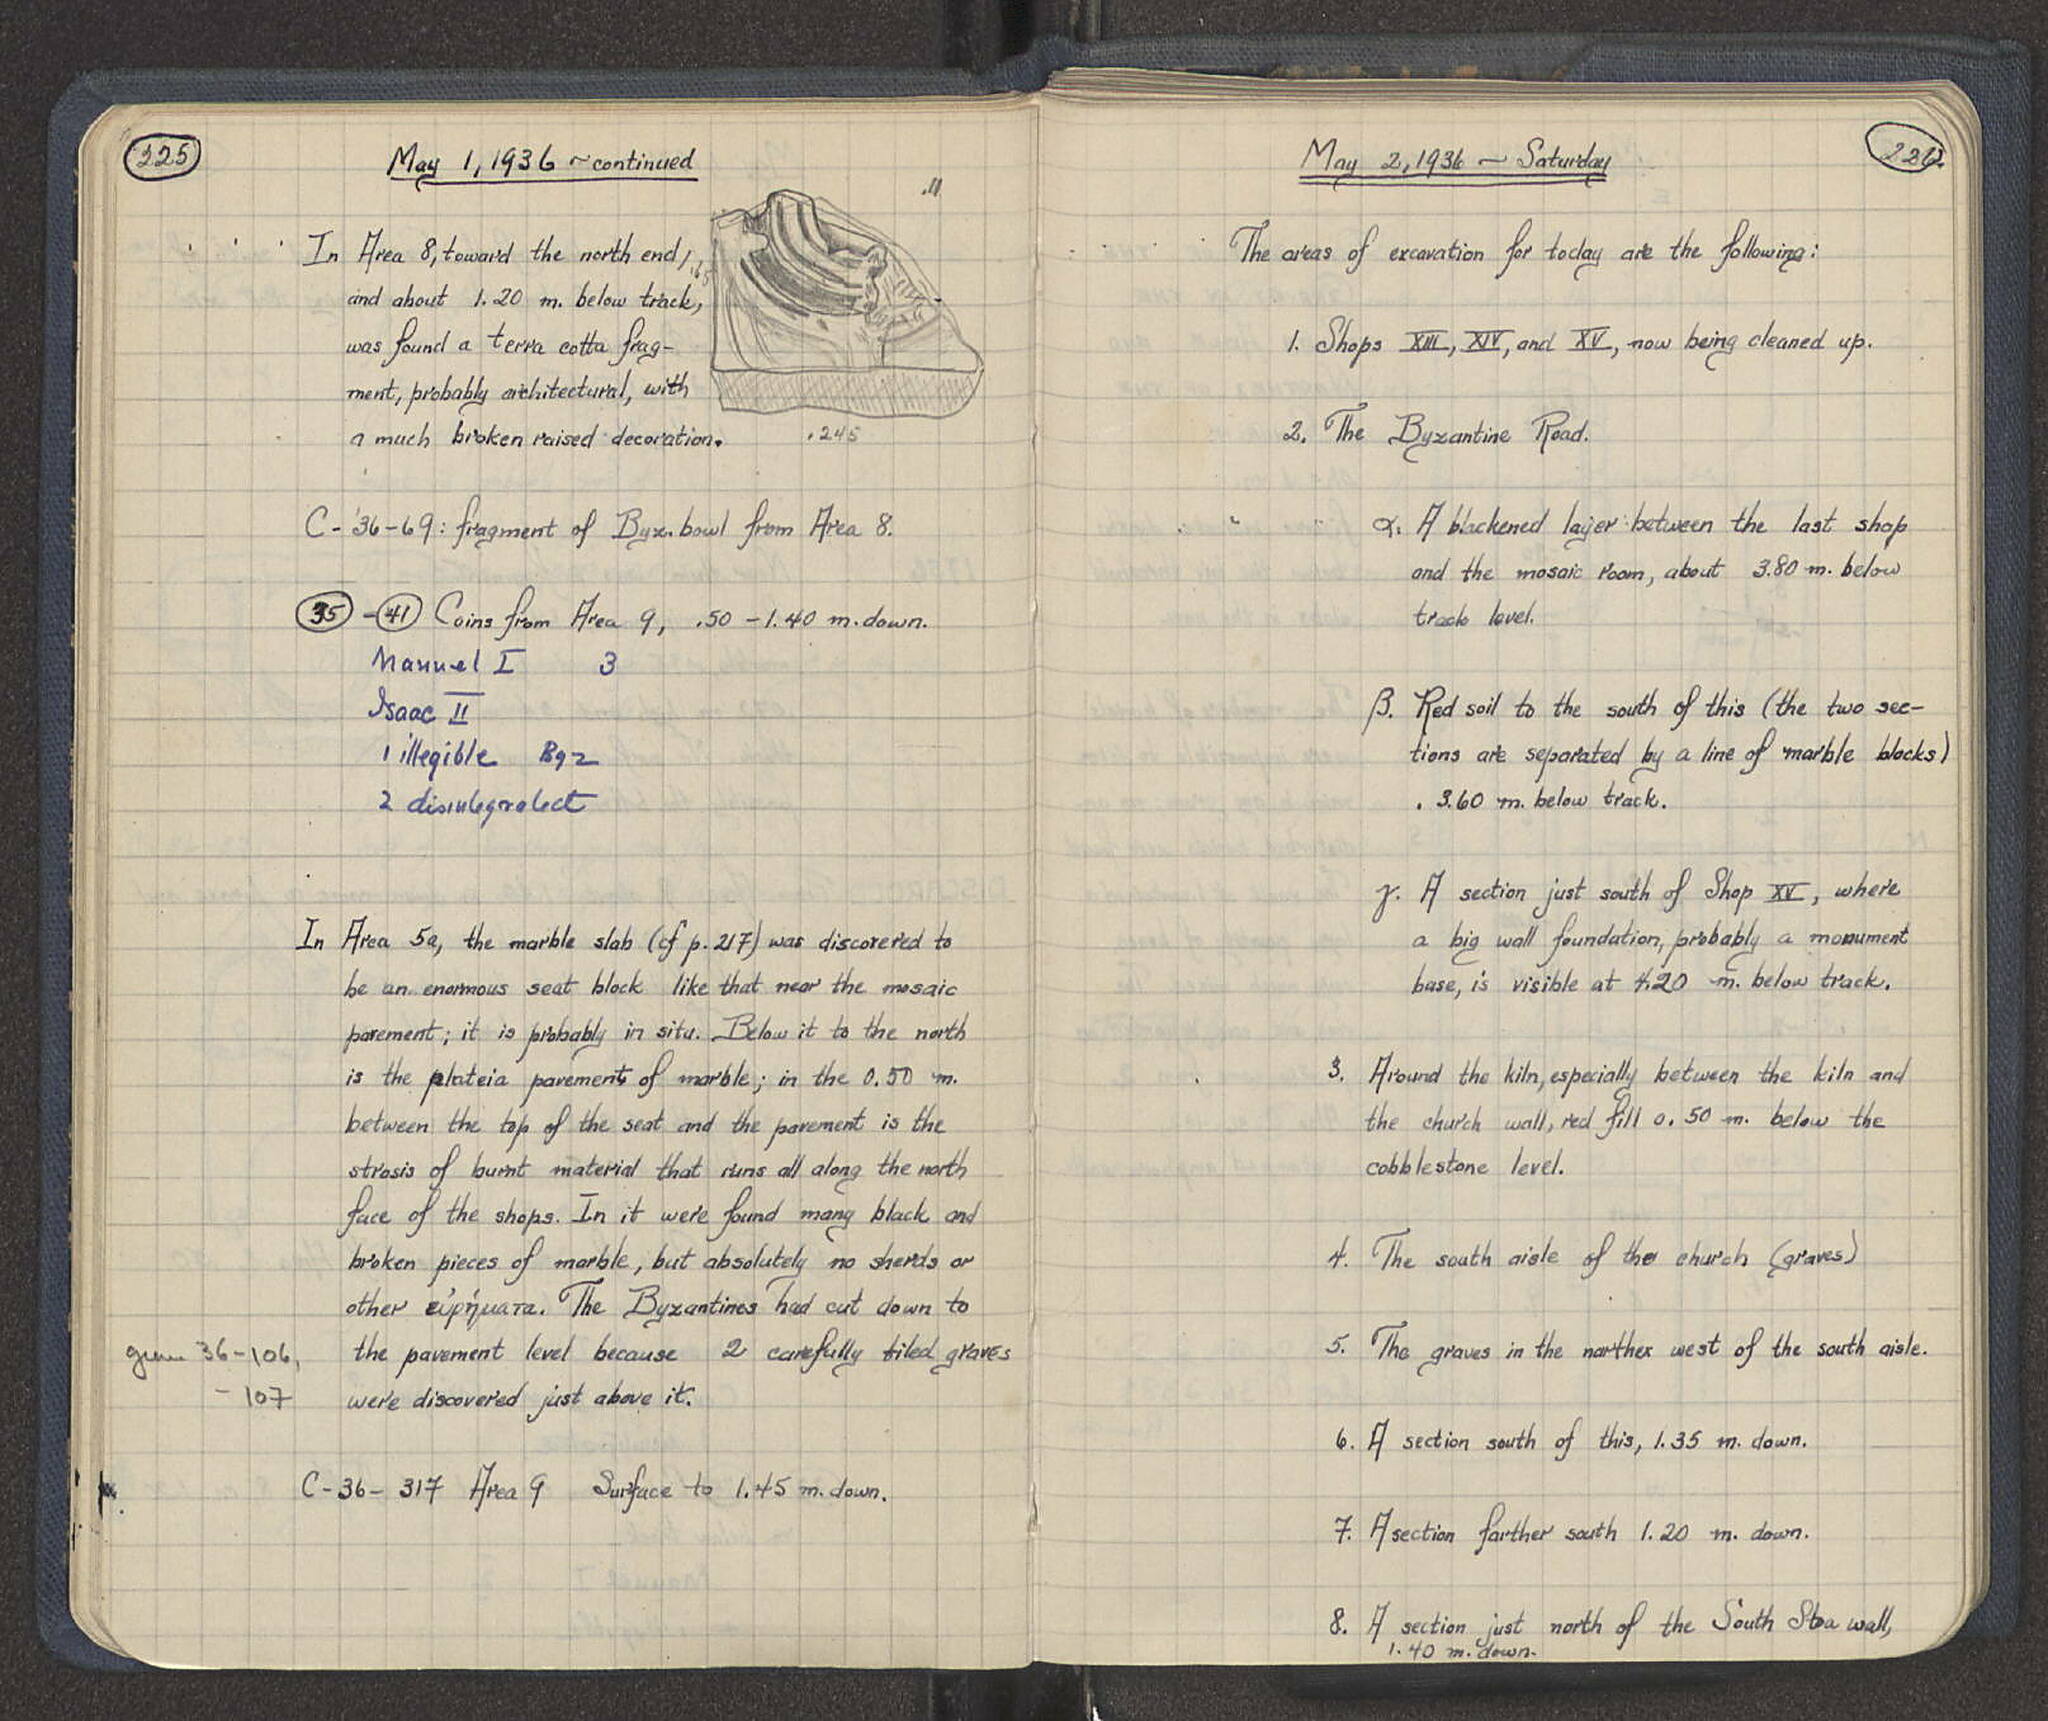 225
May 1, 1936 ~ continued
.11
In Area 8, toward the north end,
and about 1.20 m. below track,
was found a terra cotta frag-
ment, probably architectural, with
a much broken raised decoration.
.245
C-'36-69: fragment of Byz. bowl from Area 8.
35 - 41 Coins from Area 9, .50 - 1.40 m. down.
Manuel I 3
Isaac II
1 illegible Byz
2 disintegrated
In Area 5a, the marble slab (cf p. 217) was discovered to
be an enormous seat block like that near the mosaic
pavement; it is probably in situ. Below it to the north
is the plateia pavement of marble; in the 0.50 m.
between the top of the seat and the pavement is the
strosis of burnt material that runs all along the north
face of the shops. In it were found many black and
broken pieces of marble, but absolutely no sherds or
other εὑρήματα. The Byzantines had cut down to
grave 36-106, the pavement level because 2 carefully tiled graves
-107 were discovered just above it.
C-36-317 Area 9 Surface to 1.45 m. down.
226
May 2, 1936 ~ Saturday
The areas of excavation for today are the following:
1. Shops XIII, XIV, and XV, now being cleaned up.
2. The Byzantine Road.
α. A blackened layer between the last shop
and the mosaic room, about 3.80 m. below
track level.
β. Red soil to the south of this (the two sec-
tions are separated by a line of marble blocks)
3.60 m. below track.
γ. A section just south of Shop XV, where
a big wall foundation, probably a monument
base, is visible at 4.20 m. below track.
3. Around the kiln, especially between the kiln and
the church wall, red fill 0.50 m. below the
cobblestone level.
4. The south aisle of the church (graves)
5. The graves in the narthex west of the south aisle.
6. A section south of this, 1.35 m. down.
7. A section farther south 1.20 m. down.
8. A section just north of the South Stoa wall,
1.40 m. down.